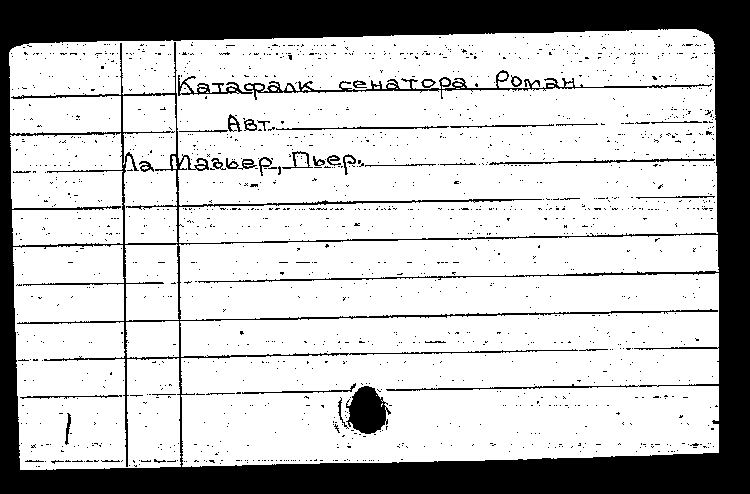 Катафалк сенатора. Роман.
Авт.:
Ла Мазьер, Пьер.